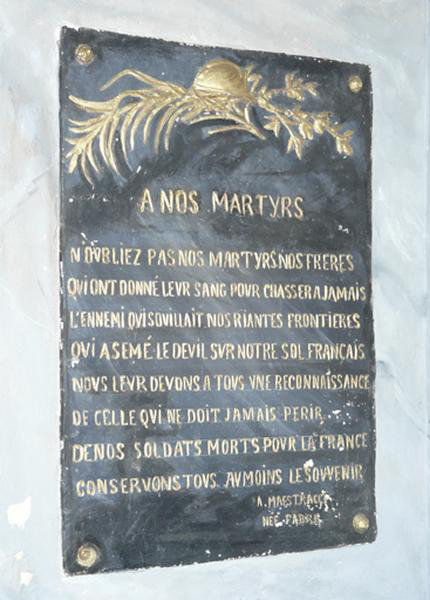 A NOS MARTYRS
N'OUBLIEZ PAS NOS MARTYRS NOS FRERES
QUI ONT DONNÉ LEVR SANG POUR CHASSER A JAMAIS
L'ENNEMI QVI SOVILLAIT NOS RIANTES FRONTIERES
QVI A SEMÉ LE DEVIL SVR NOTRE SOL FRANCAIS
NOVS LEVR DEVONS A TOVS VNE RECONNAISSANCE
DE CELLE QVI NE DOIT JAMAIS PERIR
DE NOS SOLDATS MORTS POVR LA FRANCE
CONSERVONS TOVS AV MOINS LE SOVVENIR
A. MAESTRACCI
NÉE FABRE